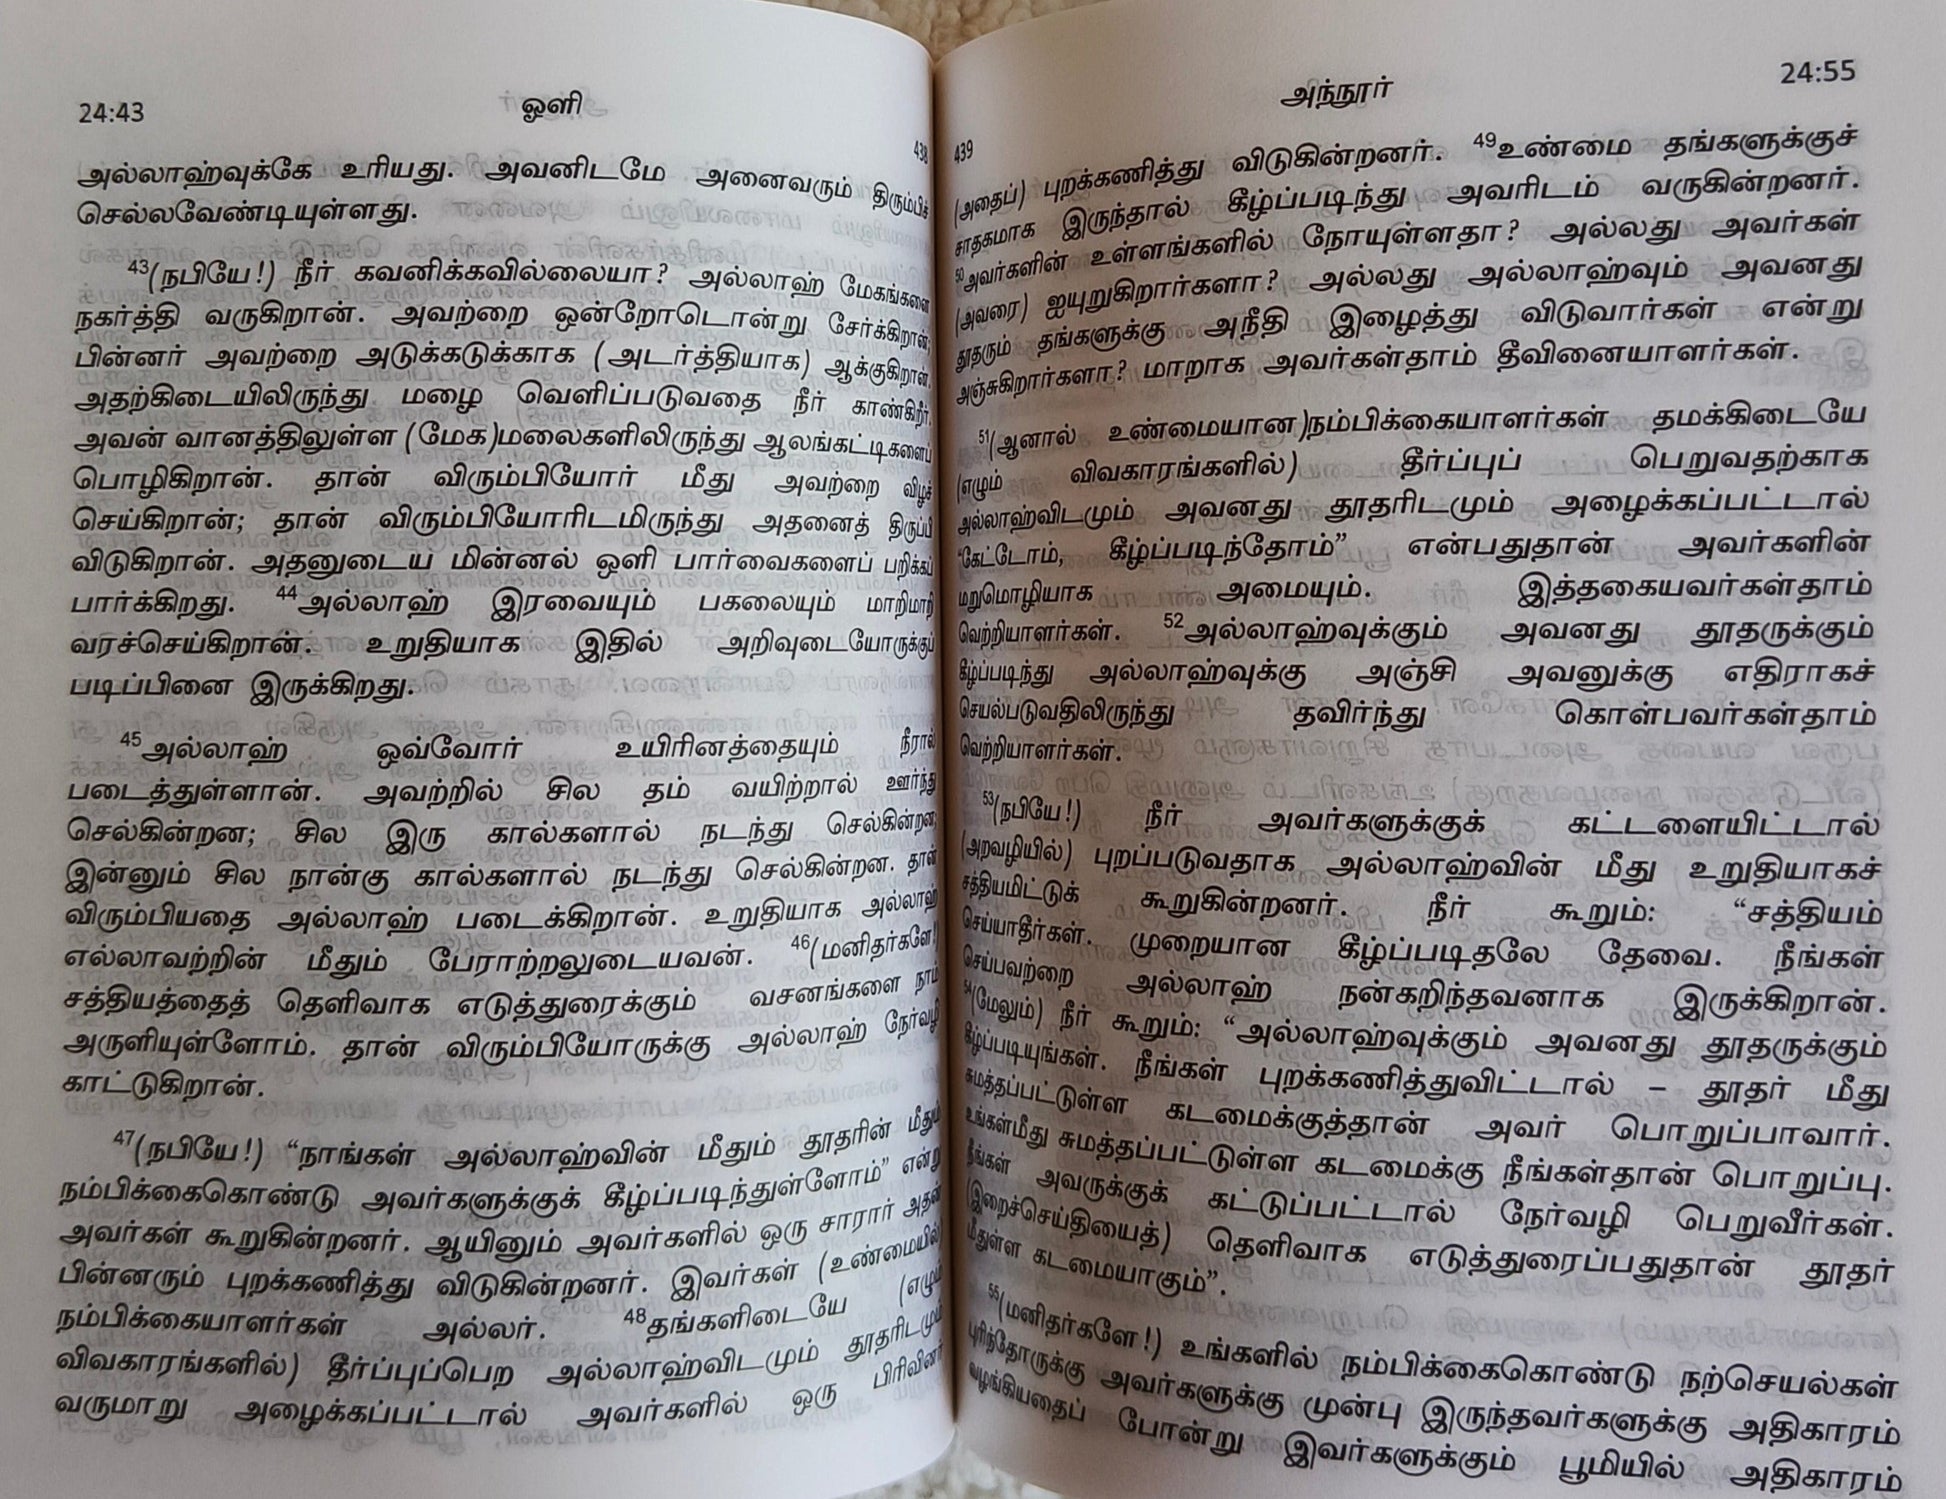 24:43
ஓளி
438
அல்லாஹ்வுக்கே உரியது. அவனிடமே அனைவரும் திரும்பிச்
செல்லவேண்டியுள்ளது.
43(நபியே!) நீர் கவனிக்கவில்லையா? அல்லாஹ் மேகங்களை
நகர்த்தி வருகிறான். அவற்றை ஒன்றோடொன்று சேர்க்கிறான்;
பின்னர் அவற்றை அடுக்கடுக்காக (அடர்த்தியாக) ஆக்குகிறான்.
அதற்கிடையிலிருந்து மழை வெளிப்படுவதை நீர் காண்கிறீர்.
அவன் வானத்திலுள்ள (மேக)மலைகளிலிருந்து ஆலங்கட்டிகளைப்
பொழிகிறான். தான் விரும்பியோர் மீது அவற்றை விழச்
செய்கிறான்; தான் விரும்பியோரிடமிருந்து அதனைத் திருப்பி
விடுகிறான். அதனுடைய மின்னல் ஒளி பார்வைகளைப் பறிக்கப்
பார்க்கிறது. 44அல்லாஹ் இரவையும் பகலையும் மாறிமாறி
வரச்செய்கிறான். உறுதியாக இதில் அறிவுடையோருக்குப்
படிப்பினை இருக்கிறது.
45அல்லாஹ் ஒவ்வோர் உயிரினத்தையும் நீரால்
படைத்துள்ளான். அவற்றில் சில தம் வயிற்றால் ஊர்ந்து
செல்கின்றன; சில இரு கால்களால் நடந்து செல்கின்றன;
இன்னும் சில நான்கு கால்களால் நடந்து செல்கின்றன. தான்
விரும்பியதை அல்லாஹ் படைக்கிறான். உறுதியாக அல்லாஹ்
எல்லாவற்றின் மீதும் பேராற்றலுடையவன். 46(மனிதர்களே!)
சத்தியத்தைத் தெளிவாக எடுத்துரைக்கும் வசனங்களை நாம்
அருளியுள்ளோம். தான் விரும்பியோருக்கு அல்லாஹ் நேர்வழி
காட்டுகிறான்.
47(நபியே!) “நாங்கள் அல்லாஹ்வின் மீதும் தூதரின் மீதும்
நம்பிக்கைகொண்டு அவர்களுக்குக் கீழ்ப்படிந்துள்ளோம்” என்று
அவர்கள் கூறுகின்றனர். ஆயினும் அவர்களில் ஒரு சாரார் அதன்
பின்னரும் புறக்கணித்து விடுகின்றனர். இவர்கள் (உண்மையில்)
நம்பிக்கையாளர்கள் அல்லர். 48தங்களிடையே (எழும்
விவகாரங்களில்) தீர்ப்புப்பெற அல்லாஹ்விடமும் தூதரிடமும்
வருமாறு அழைக்கப்பட்டால் அவர்களில் ஒரு பிரிவினர்
439
அந்நூர்
24:55
(அதைப்) புறக்கணித்து விடுகின்றனர். 49உண்மை தங்களுக்குச்
சாதகமாக இருந்தால் கீழ்ப்படிந்து அவரிடம் வருகின்றனர்.
50அவர்களின் உள்ளங்களில் நோயுள்ளதா? அல்லது அவர்கள்
(அவரை) ஐயுறுகிறார்களா? அல்லது அல்லாஹ்வும் அவனது
தூதரும் தங்களுக்கு அநீதி இழைத்து விடுவார்கள் என்று
அஞ்சுகிறார்களா? மாறாக அவர்கள்தாம் தீவினையாளர்கள்.
51(ஆனால் உண்மையான)நம்பிக்கையாளர்கள் தமக்கிடையே
(எழும் விவகாரங்களில்) தீர்ப்புப் பெறுவதற்காக
அல்லாஹ்விடமும் அவனது தூதரிடமும் அழைக்கப்பட்டால்
“கேட்டோம், கீழ்ப்படிந்தோம்” என்பதுதான் அவர்களின்
மறுமொழியாக அமையும். இத்தகையவர்கள்தாம்
வெற்றியாளர்கள். 52அல்லாஹ்வுக்கும் அவனது தூதருக்கும்
கீழ்ப்படிந்து அல்லாஹ்வுக்கு அஞ்சி அவனுக்கு எதிராகச்
செயல்படுவதிலிருந்து தவிர்ந்து கொள்பவர்கள்தாம்
வெற்றியாளர்கள்.
53(நபியே!) நீர் அவர்களுக்குக் கட்டளையிட்டால்
(அறவழியில்) புறப்படுவதாக அல்லாஹ்வின் மீது உறுதியாகச்
சத்தியமிட்டுக் கூறுகின்றனர். நீர் கூறும்: “சத்தியம்
செய்யாதீர்கள். முறையான கீழ்ப்படிதலே தேவை. நீங்கள்
செய்பவற்றை அல்லாஹ் நன்கறிந்தவனாக இருக்கிறான்.
54(மேலும்) நீர் கூறும்: “அல்லாஹ்வுக்கும் அவனது தூதருக்கும்
கீழ்ப்படியுங்கள். நீங்கள் புறக்கணித்துவிட்டால் – தூதர் மீது
சுமத்தப்பட்டுள்ள கடமைக்குத்தான் அவர் பொறுப்பாவார்.
உங்கள்மீது சுமத்தப்பட்டுள்ள கடமைக்கு நீங்கள்தான் பொறுப்பு.
நீங்கள் அவருக்குக் கட்டுப்பட்டால் நேர்வழி பெறுவீர்கள்.
(இறைச்செய்தியைத்) தெளிவாக எடுத்துரைப்பதுதான் தூதர்
மீதுள்ள கடமையாகும்”.
55(மனிதர்களே!) உங்களில் நம்பிக்கைகொண்டு நற்செயல்கள்
புரிந்தோருக்கு அவர்களுக்கு முன்பு இருந்தவர்களுக்கு அதிகாரம்
வழங்கியதைப் போன்று இவர்களுக்கும் பூமியில் அதிகாரம்